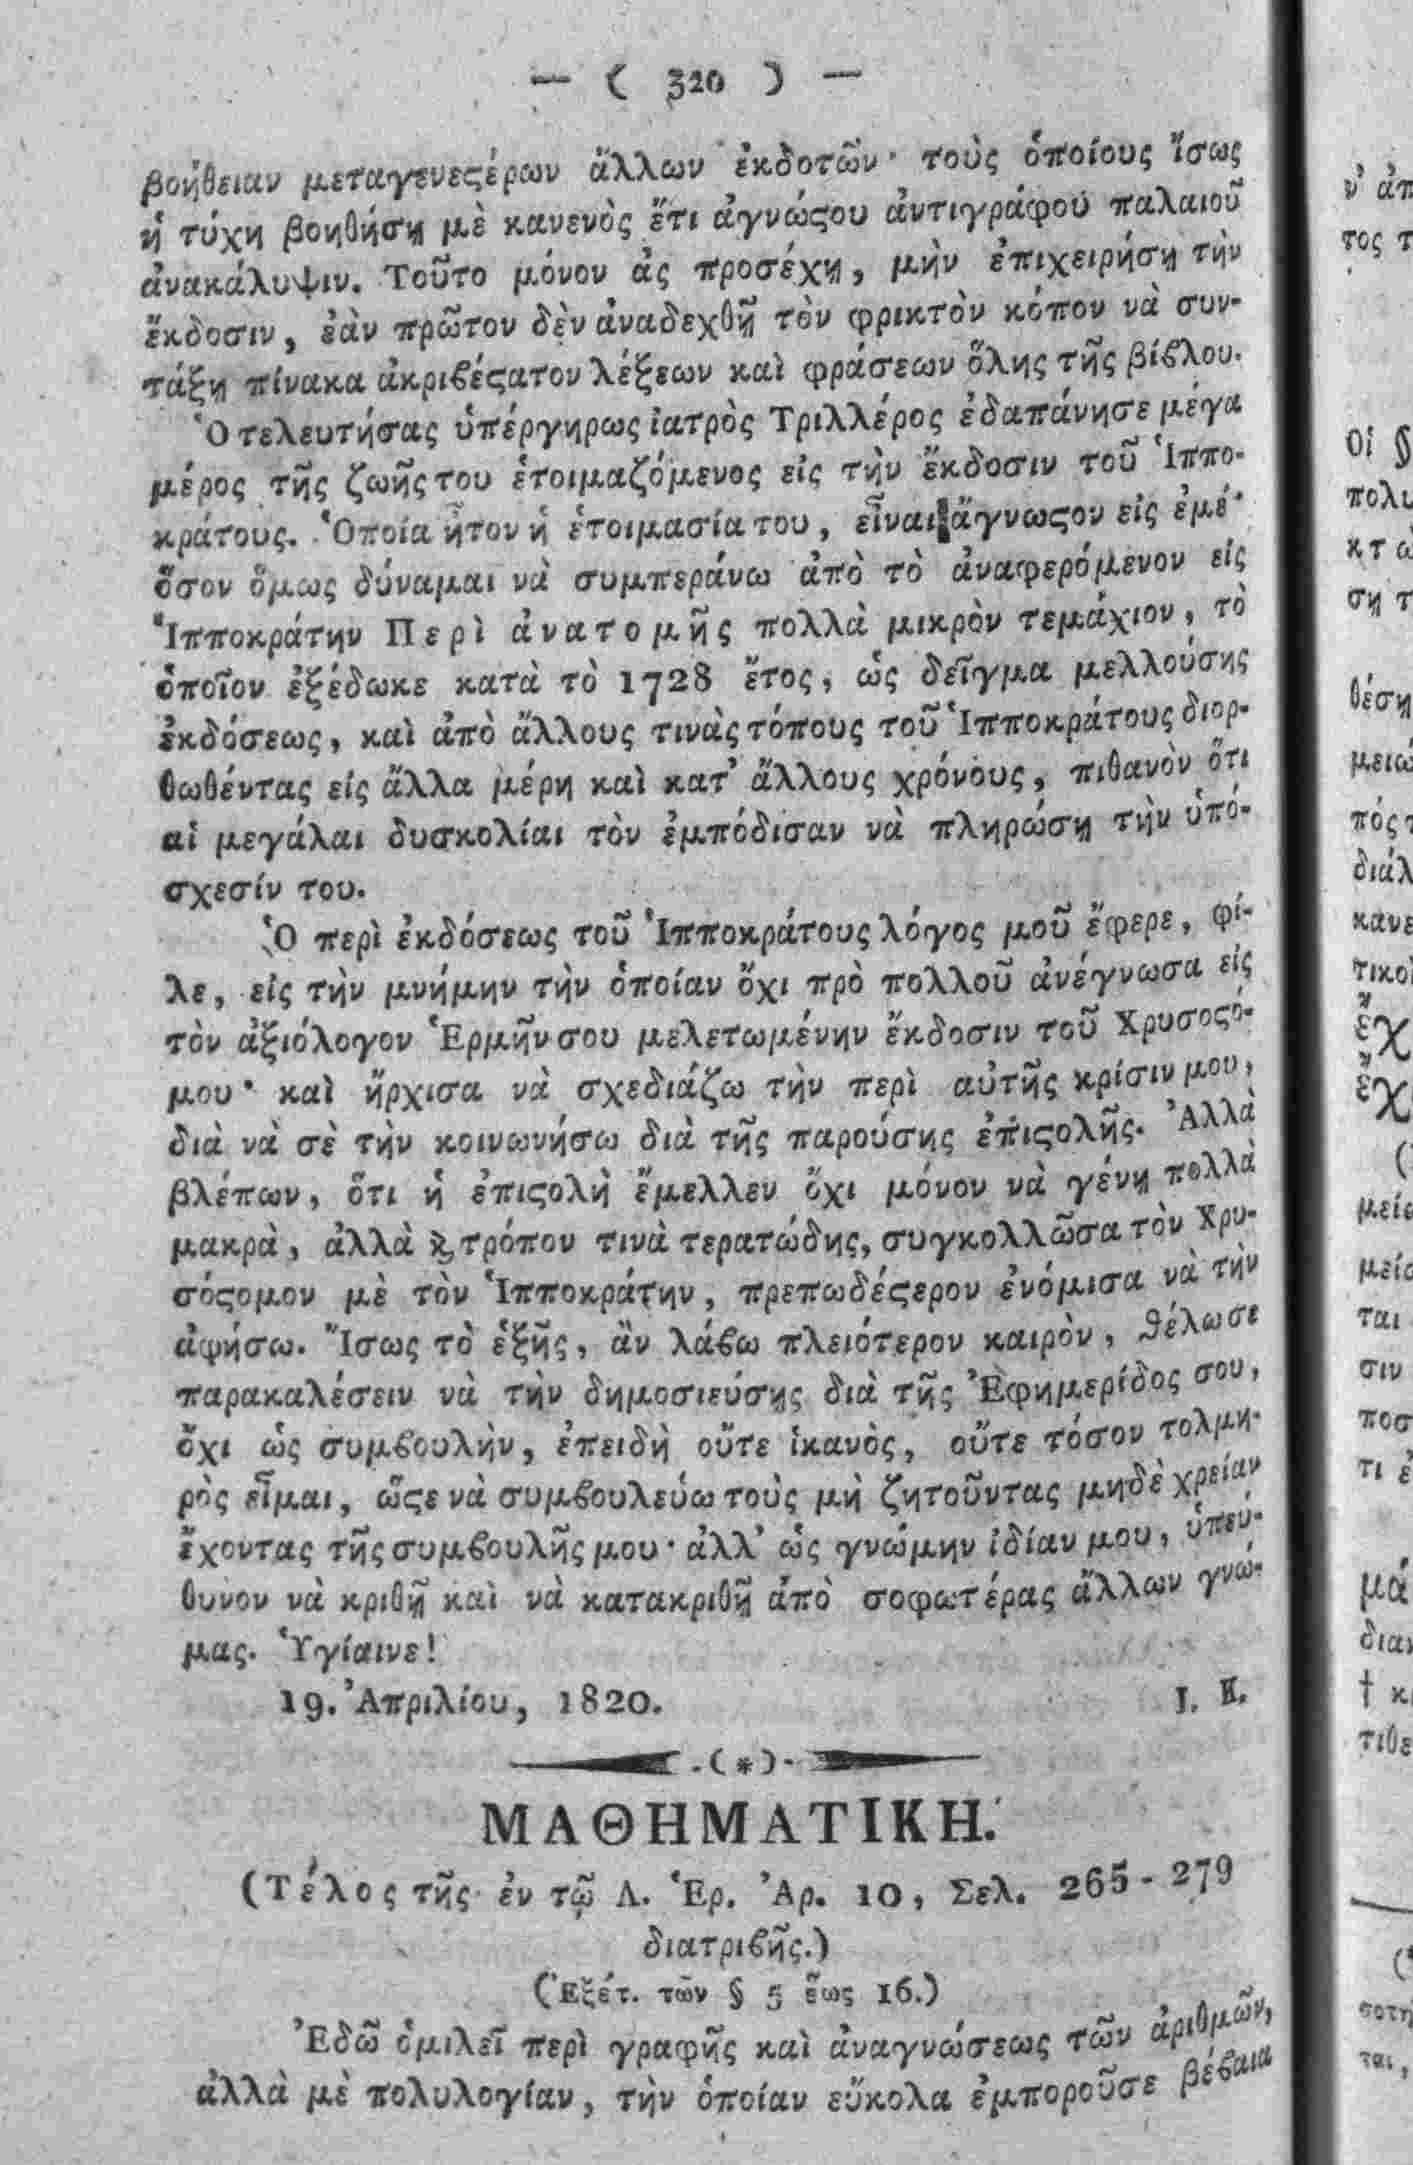 — ( 320 ) —
βοήθειαν μεταγενεϛέρων ἄλλων ἐκδοτῶν· τοὺς ὁποίους ἴσως
ἡ τύχη βοηθήσῃ μὲ κανενὸς ἔτι ἀγνώϛου ἀντιγράφου παλαιοῦ
ἀνακάλυψιν. Τοῦτο μόνον ἂς προσέχῃ, μὴν ἐπιχειρήσῃ τὴν
ἔκδοσιν, ἐὰν πρῶτον δὲν ἀναδεχθῇ τὸν φρικτὸν κόπον νὰ συν-
τάξῃ πίνακα ἀκριϐέϛατον λέξεων καὶ φράσεων ὅλης τῆς βίϐλου.
Ὁ τελευτήσας ὑπέργηρως ἰατρὸς Τριλλέρος ἐδαπάνησε μέγα
μέρος τῆς ζωῆς του ἑτοιμαζόμενος εἰς τὴν ἔκδοσιν τοῦ Ἱππο-
κράτους. Ὁποία ἦτον ἡ ἑτοιμασία του, εἶναι ἄγνωϛον εἰς ἐμέ·
ὅσον ὅμως δύναμαι νὰ συμπεράνω ἀπὸ τὸ ἀναφερόμενον εἰς
Ἱπποκράτην Περὶ ἀνατομῆς πολλὰ μικρὸν τεμάχιον, τὸ
ὁποῖον ἐξέδωκε κατὰ τὸ 1728 ἔτος, ὡς δεῖγμα μελλούσης
ἐκδόσεως, καὶ ἀπὸ ἄλλους τινὰς τόπους τοῦ Ἱπποκράτους διορ-
θωθέντας εἰς ἄλλα μέρη καὶ κατ’ ἄλλους χρόνους, πιθανὸν ὅτι
αἱ μεγάλαι δυσκολίαι τὸν ἐμπόδισαν νὰ πληρώσῃ τὴν ὑπό-
σχεσίν του.
Ὁ περὶ ἐκδόσεως τοῦ Ἱπποκράτους λόγος μοῦ ἔφερε, φί-
λε, εἰς τὴν μνήμην τὴν ὁποίαν ὄχι πρὸ πολλοῦ ἀνέγνωσα εἰς
τὸν ἀξιόλογον Ἑρμῆν σου μελετωμένην ἔκδοσιν τοῦ Χρυσοϛό-
μου· καὶ ἤρχισα νὰ σχεδιάζω τὴν περὶ αὐτῆς κρίσιν μου,
διὰ νὰ σὲ τὴν κοινωνήσω διὰ τῆς παρούσης ἐπιϛολῆς. Ἀλλὰ
βλέπων, ὅτι ἡ ἐπιϛολὴ ἔμελλεν ὄχι μόνον νὰ γένῃ πολλὰ
μακρὰ, ἀλλὰ ϗ τρόπον τινὰ τερατώδης, συγκολλῶσα τὸν Χρυ-
σόϛομον μὲ τὸν Ἱπποκράτην, πρεπωδέϛερον ἐνόμισα νὰ τὴν
ἀφήσω. Ἴσως τὸ ἑξῆς, ἂν λάϐω πλειότερον καιρὸν, ϑέλω σε
παρακαλέσειν νὰ τὴν δημοσιεύσῃς διὰ τῆς Ἐφημερίδος σου,
ὄχι ὡς συμϐουλὴν, ἐπειδὴ οὔτε ἱκανὸς, οὔτε τόσον τολμη-
ρὸς εἶμαι, ὥϛε νὰ συμϐουλεύω τοὺς μὴ ζητοῦντας μηδὲ χρείαν
ἔχοντας τῆς συμϐουλῆς μου· ἀλλ’ ὡς γνώμην ἰδίαν μου, ὑπεύ-
θυνον νὰ κριθῇ καὶ νὰ κατακριθῇ ἀπὸ σοφωτέρας ἄλλων γνώ-
μας. Ὑγίαινε!
19. Ἀπριλίου, 1820. Ι. Κ.
-(*)-
ΜΑΘΗΜΑΤΙΚΗ.
(Τέλος τῆς ἐν τῷ Λ. Ἑρ. Ἀρ. 10, Σελ. 265-279
διατριϐῆς.)
(Ἐξέτ. τῶν § 5 ἕως 16.)
Ἐδῶ ὁμιλεῖ περὶ γραφῆς καὶ ἀναγνώσεως τῶν ἀριθμῶν,
ἀλλὰ μὲ πολυλογίαν, τὴν ὁποίαν εὔκολα ἐμποροῦσε βέϐαια